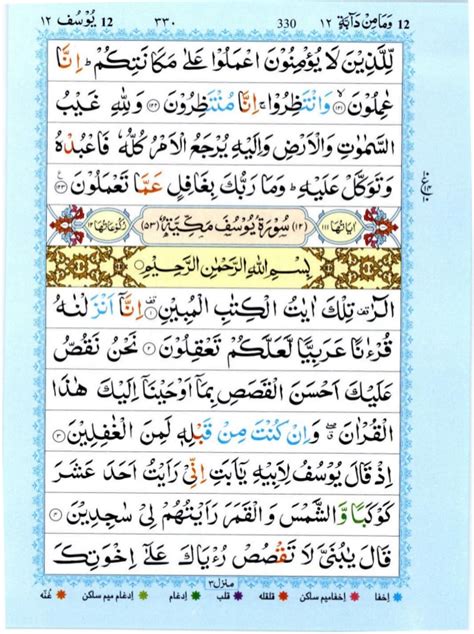 12 وَمَا مِنْ دَآبَّةٍ ١٢ 330 ٣٣٠ 12 يُوْسُف ١٢
لِّلَّذِيْنَ لَا يُؤْمِنُوْنَ اعْمَلُوْا عَلٰى مَكَانَتِكُمْ ؕ اِنَّا
عٰمِلُوْنَ ۙ﴿۱۲۱﴾ وَانْتَظِرُوْا ۚ اِنَّا مُنْتَظِرُوْنَ ﴿۱۲۲﴾ وَلِلّٰهِ غَيْبُ
السَّمٰوٰتِ وَالْاَرْضِ وَاِلَيْهِ يُرْجَعُ الْاَمْرُ كُلُّهٗ فَاعْبُدْهُ
وَتَوَكَّلْ عَلَيْهِ ؕ وَمَا رَبُّكَ بِغَافِلٍ عَمَّا تَعْمَلُوْنَ ﴿۱۲۳﴾
اٰيَاتُهَا ١١١ (١٢) سُوْرَةُ يُوْسُفَ مَكِّيَّةٌ (٥٣) رُكُوْعَاتُهَا ١٢
بِسْمِ اللّٰهِ الرَّحْمٰنِ الرَّحِيْمِ
الٓرٰ ۟ تِلْكَ اٰيٰتُ الْكِتٰبِ الْمُبِيْنِ ﴿۱﴾ اِنَّآ اَنْزَلْنٰهُ
قُرْءٰنًا عَرَبِيًّا لَّعَلَّكُمْ تَعْقِلُوْنَ ﴿۲﴾ نَحْنُ نَقُصُّ
عَلَيْكَ اَحْسَنَ الْقَصَصِ بِمَآ اَوْحَيْنَآ اِلَيْكَ هٰذَا
الْقُرْاٰنَ ۖ وَاِنْ كُنْتَ مِنْ قَبْلِهٖ لَمِنَ الْغٰفِلِيْنَ ﴿۳﴾
اِذْ قَالَ يُوْسُفُ لِاَبِيْهِ يٰٓاَبَتِ اِنِّيْ رَاَيْتُ اَحَدَ عَشَرَ
كَوْكَبًا وَّالشَّمْسَ وَالْقَمَرَ رَاَيْتُهُمْ لِيْ سٰجِدِيْنَ ﴿۴﴾
قَالَ يٰبُنَيَّ لَا تَقْصُصْ رُءْيَاكَ عَلٰٓى اِخْوَتِكَ
منزل٣
اِخفا اِخفامیم ساکن قلقله قلب اِدغام اِدغام میم ساکن غُنّه